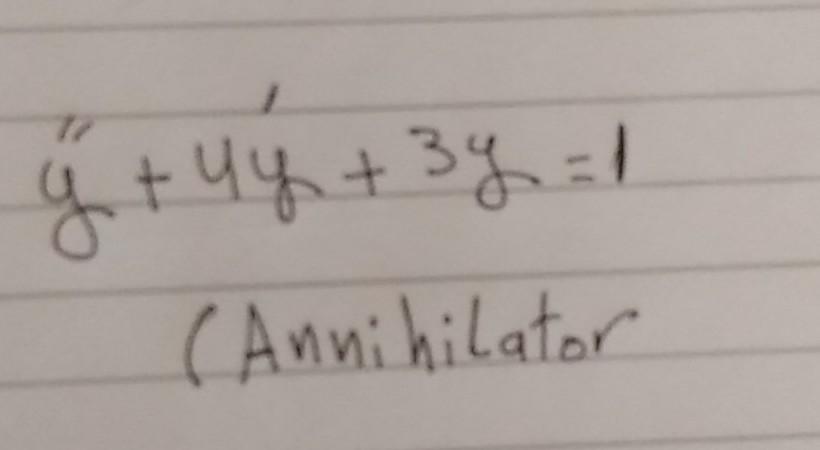 y'' + 4y' + 3y = 1
(Annihilator